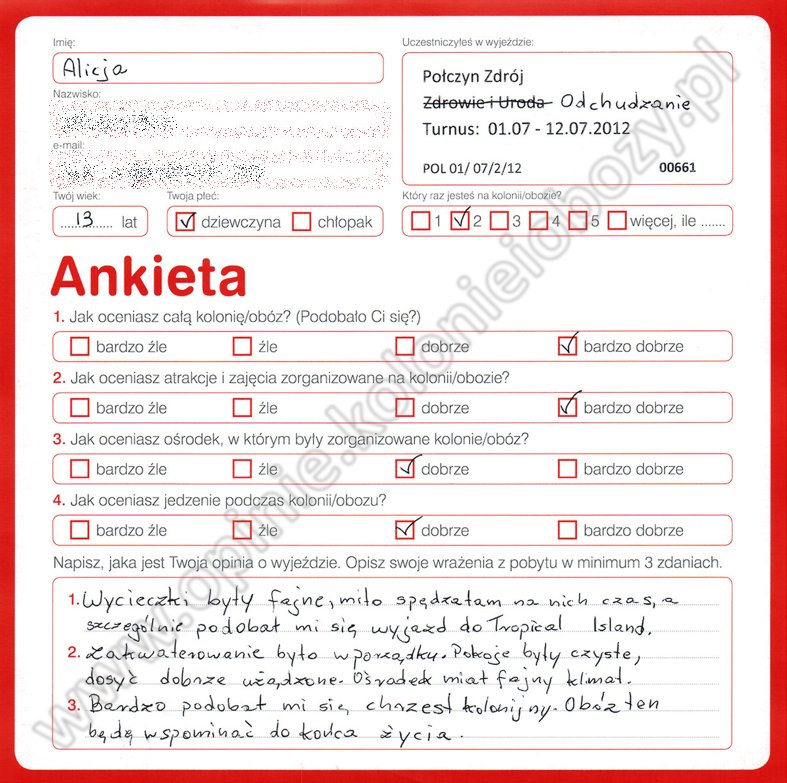 Imię:
Alicja
Uczestniczyłeś w wyjeździe:
Połczyn Zdrój
Zdrowie i Uroda Odchudzanie
Turnus: 01.07 - 12.07.2012
POL 01/ 07/2/12 00661
Nazwisko:
e-mail:
Twój wiek:
13 lat
Twoja płeć:
dziewczyna chłopak
Który raz jesteś na kolonii/obozie?
1 2 3 4 5 więcej, ile .......
Ankieta
1. Jak oceniasz całą kolonię/obóz? (Podobało Ci się?)
bardzo źle źle dobrze bardzo dobrze
2. Jak oceniasz atrakcje i zajęcia zorganizowane na kolonii/obozie?
bardzo źle źle dobrze bardzo dobrze
3. Jak oceniasz ośrodek, w którym były zorganizowane kolonie/obóz?
bardzo źle źle dobrze bardzo dobrze
4. Jak oceniasz jedzenie podczas kolonii/obozu?
bardzo źle źle dobrze bardzo dobrze
Napisz, jaka jest Twoja opinia o wyjeździe. Opisz swoje wrażenia z pobytu w minimum 3 zdaniach.
1. Wycieczki były fajne, miło spędzałam na nich czas, a
szczególnie podobał mi się wyjazd do Tropical Island.
2. Zakwaterowanie było w porządku. Pokoje były czyste,
dosyć dobrze użądzone. Ośrodek miał fajny klimat.
3. Bardzo podobał mi się chrzest kolonijny. Obóz ten
będę wspominać do końca życia.
www.opinie.kolonieiobozy.pl